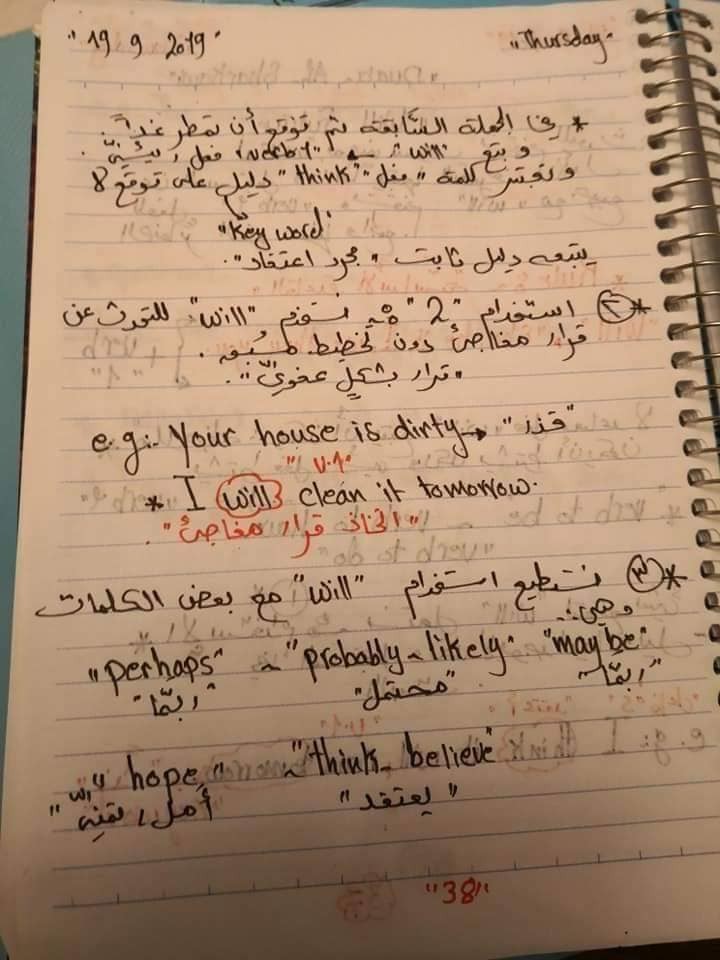 "19 9 2019" "Thursday"
* في الجملة السابقة تم توقع أن تمطر غداً.
و يتبع "will" ← "verb 1" فعل
وتعتبر كلمة "think" دليل على توقع لا
"key word"
يتبعه دليل ثابت "مجرد اعتقاد".
* ② استخدام "2" نستخدم "will" للتحدث عن
قرار مفاجئ دون تخطيط مسبق.
"قرار بشكلٍ عفويّ".
e.g:- Your house is dirty → "قذر"
"v.1"
* I will clean it tomorrow.
"اتخاذ قرار مفاجئ".
* ③ نستطيع استخدام "will" مع بعض الكلمات
وهي:-
"perhaps" ~ "probably ~ likely" "maybe"
"ربّما" "محتمل" "ربّما"
"hope" ~ "think ~ believe"
"أمل, يتمنى" "يعتقد"
"38"